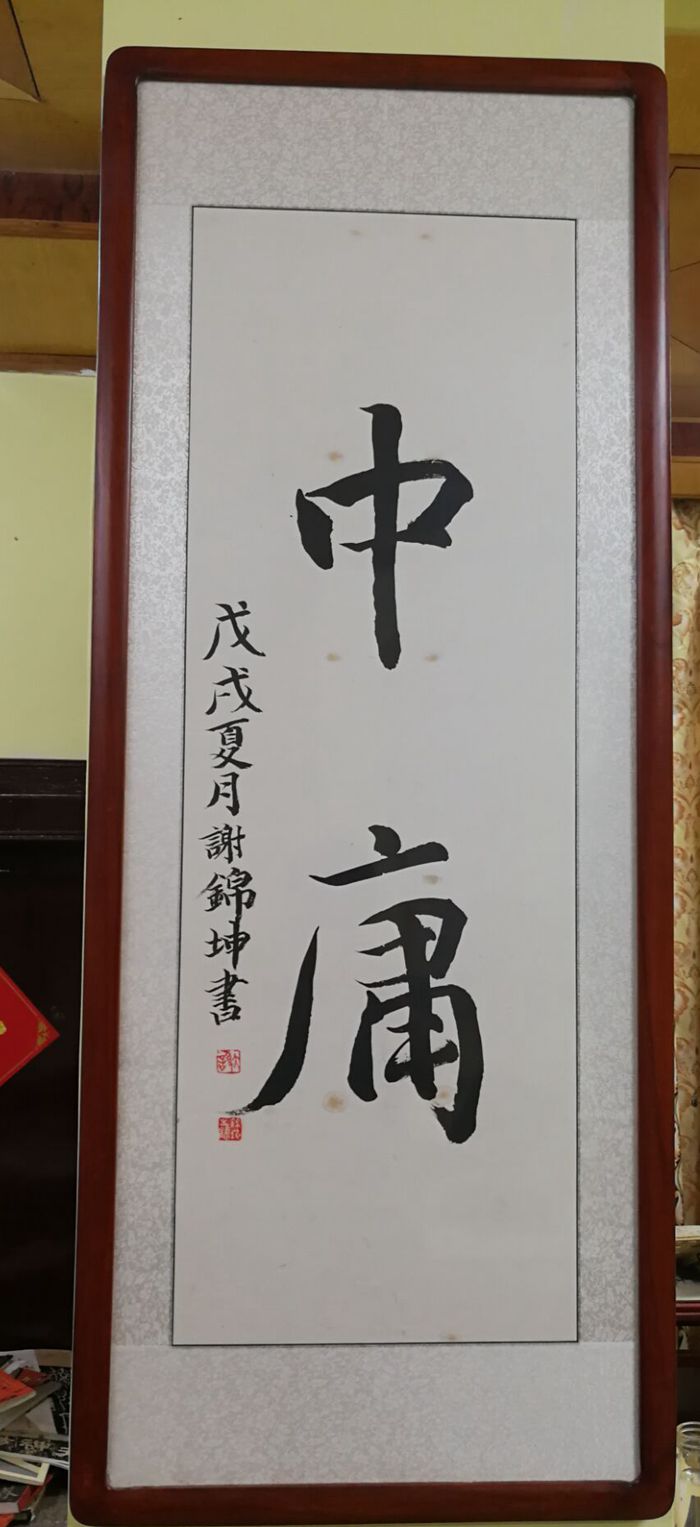 中庸
戊戌夏月謝錦坤書